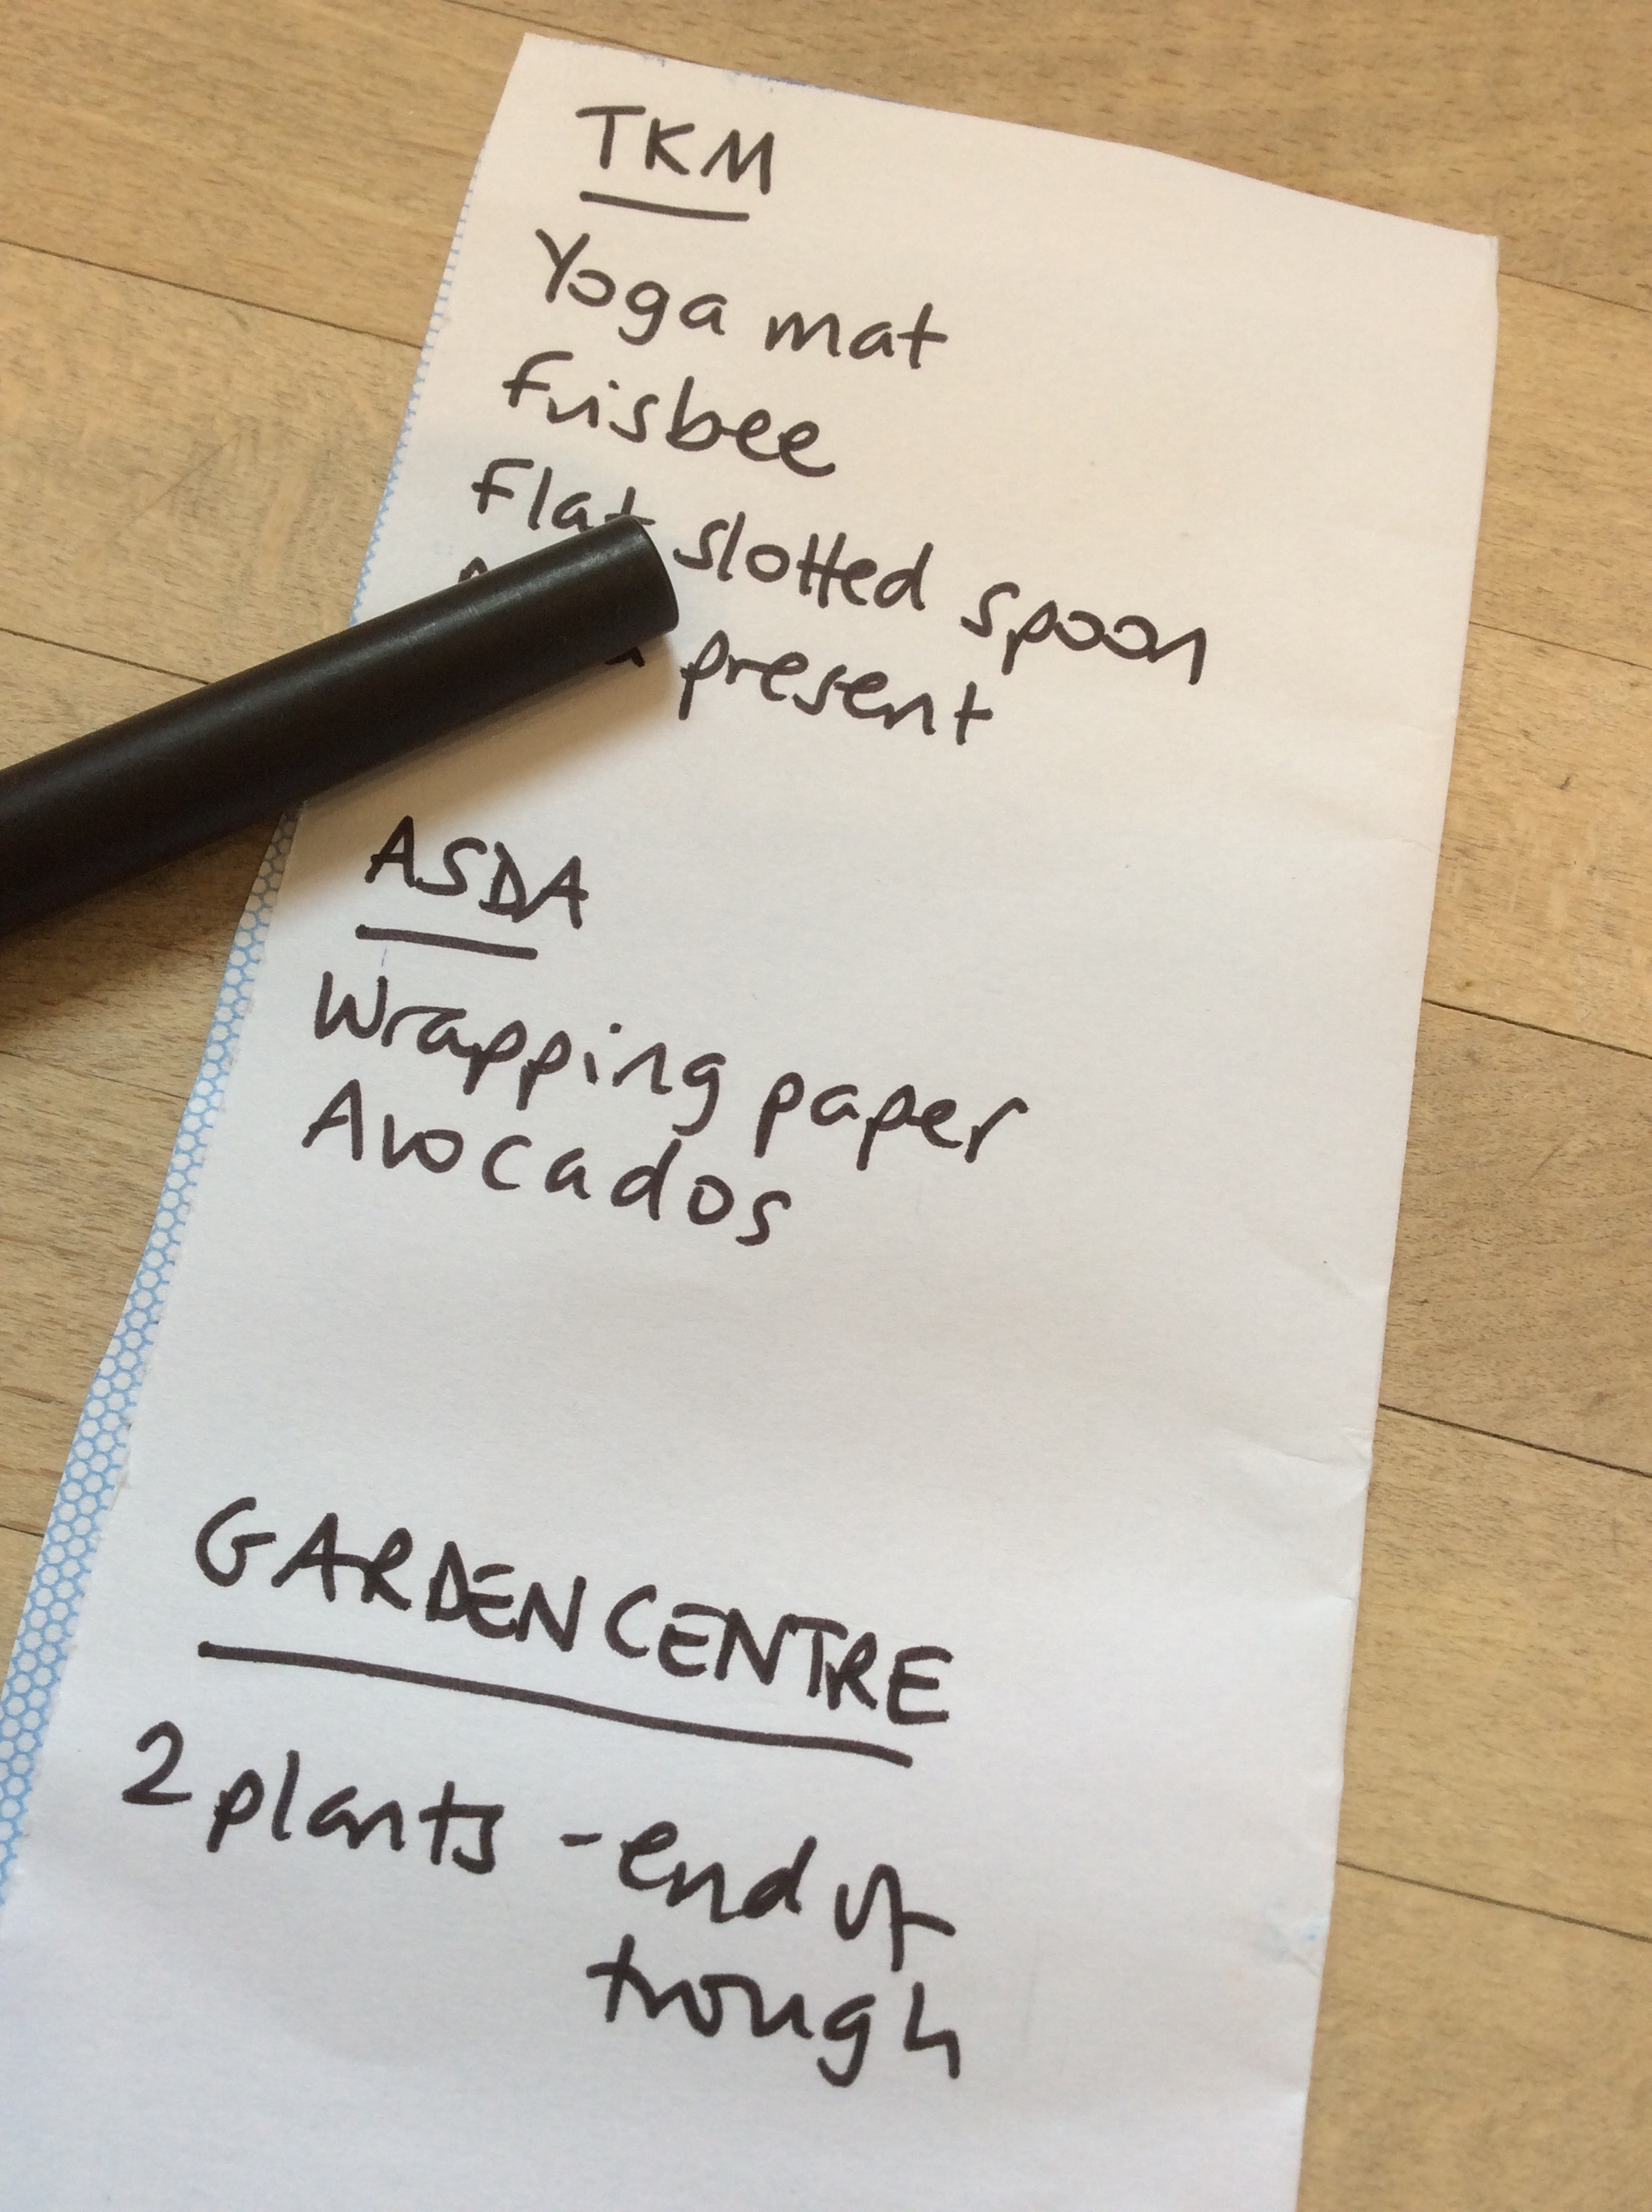 TKM
Yoga mat
Frisbee
Flat slotted spoon
present
ASDA
Wrapping paper
Avocados
GARDEN CENTRE
2 plants - end of
trough